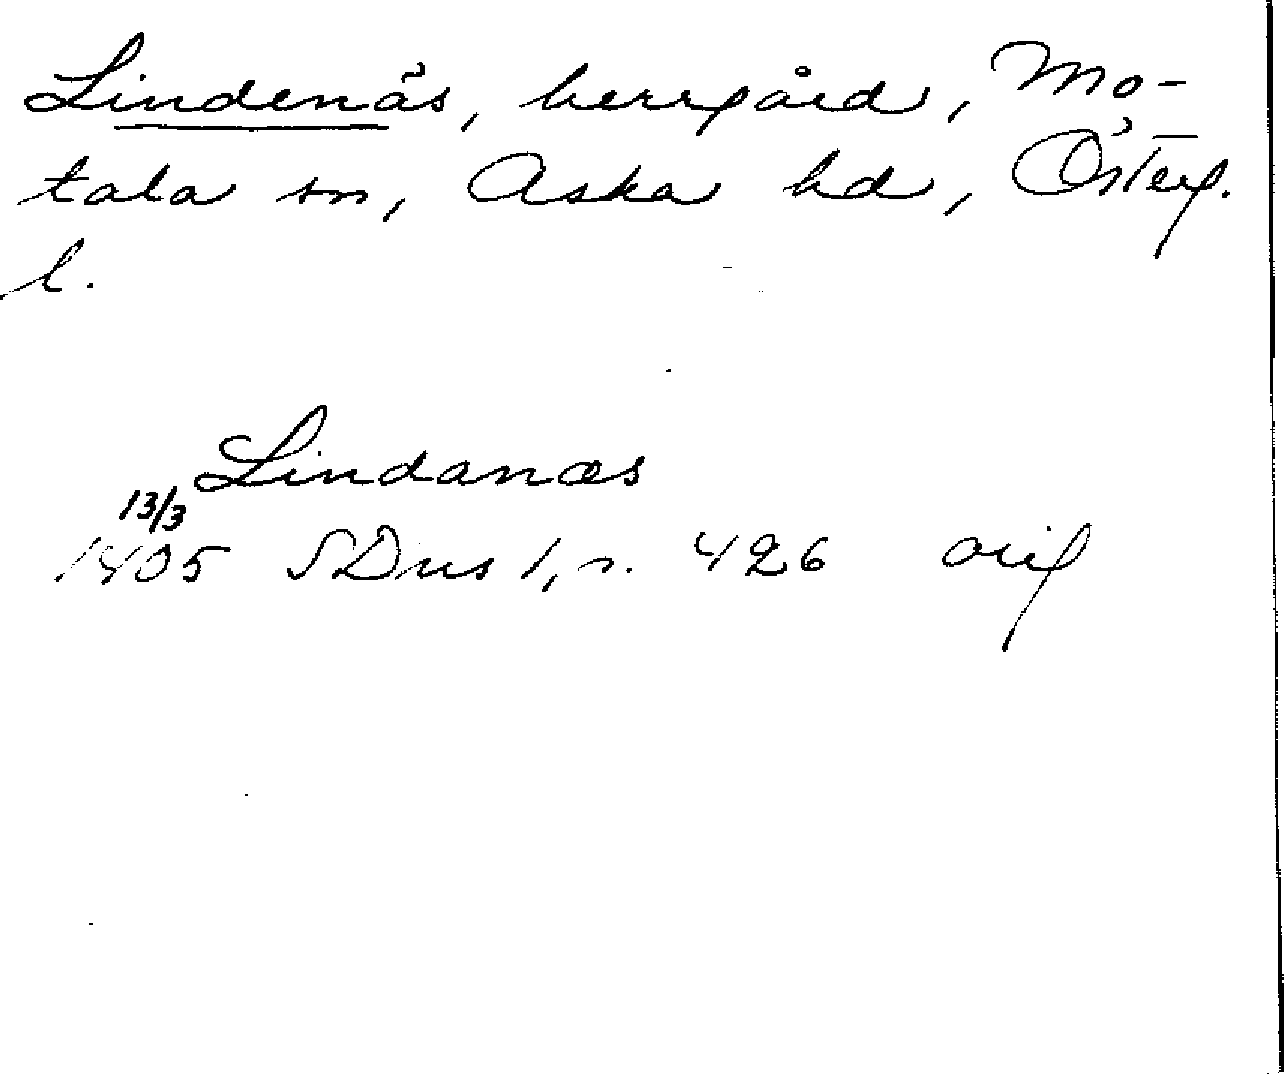 Lindenäs, herrgård, Mo-
tala sn, Aska hd, Österg.
l.
Lindanæs
13/3
1405 SDns 1, s. 426 orig